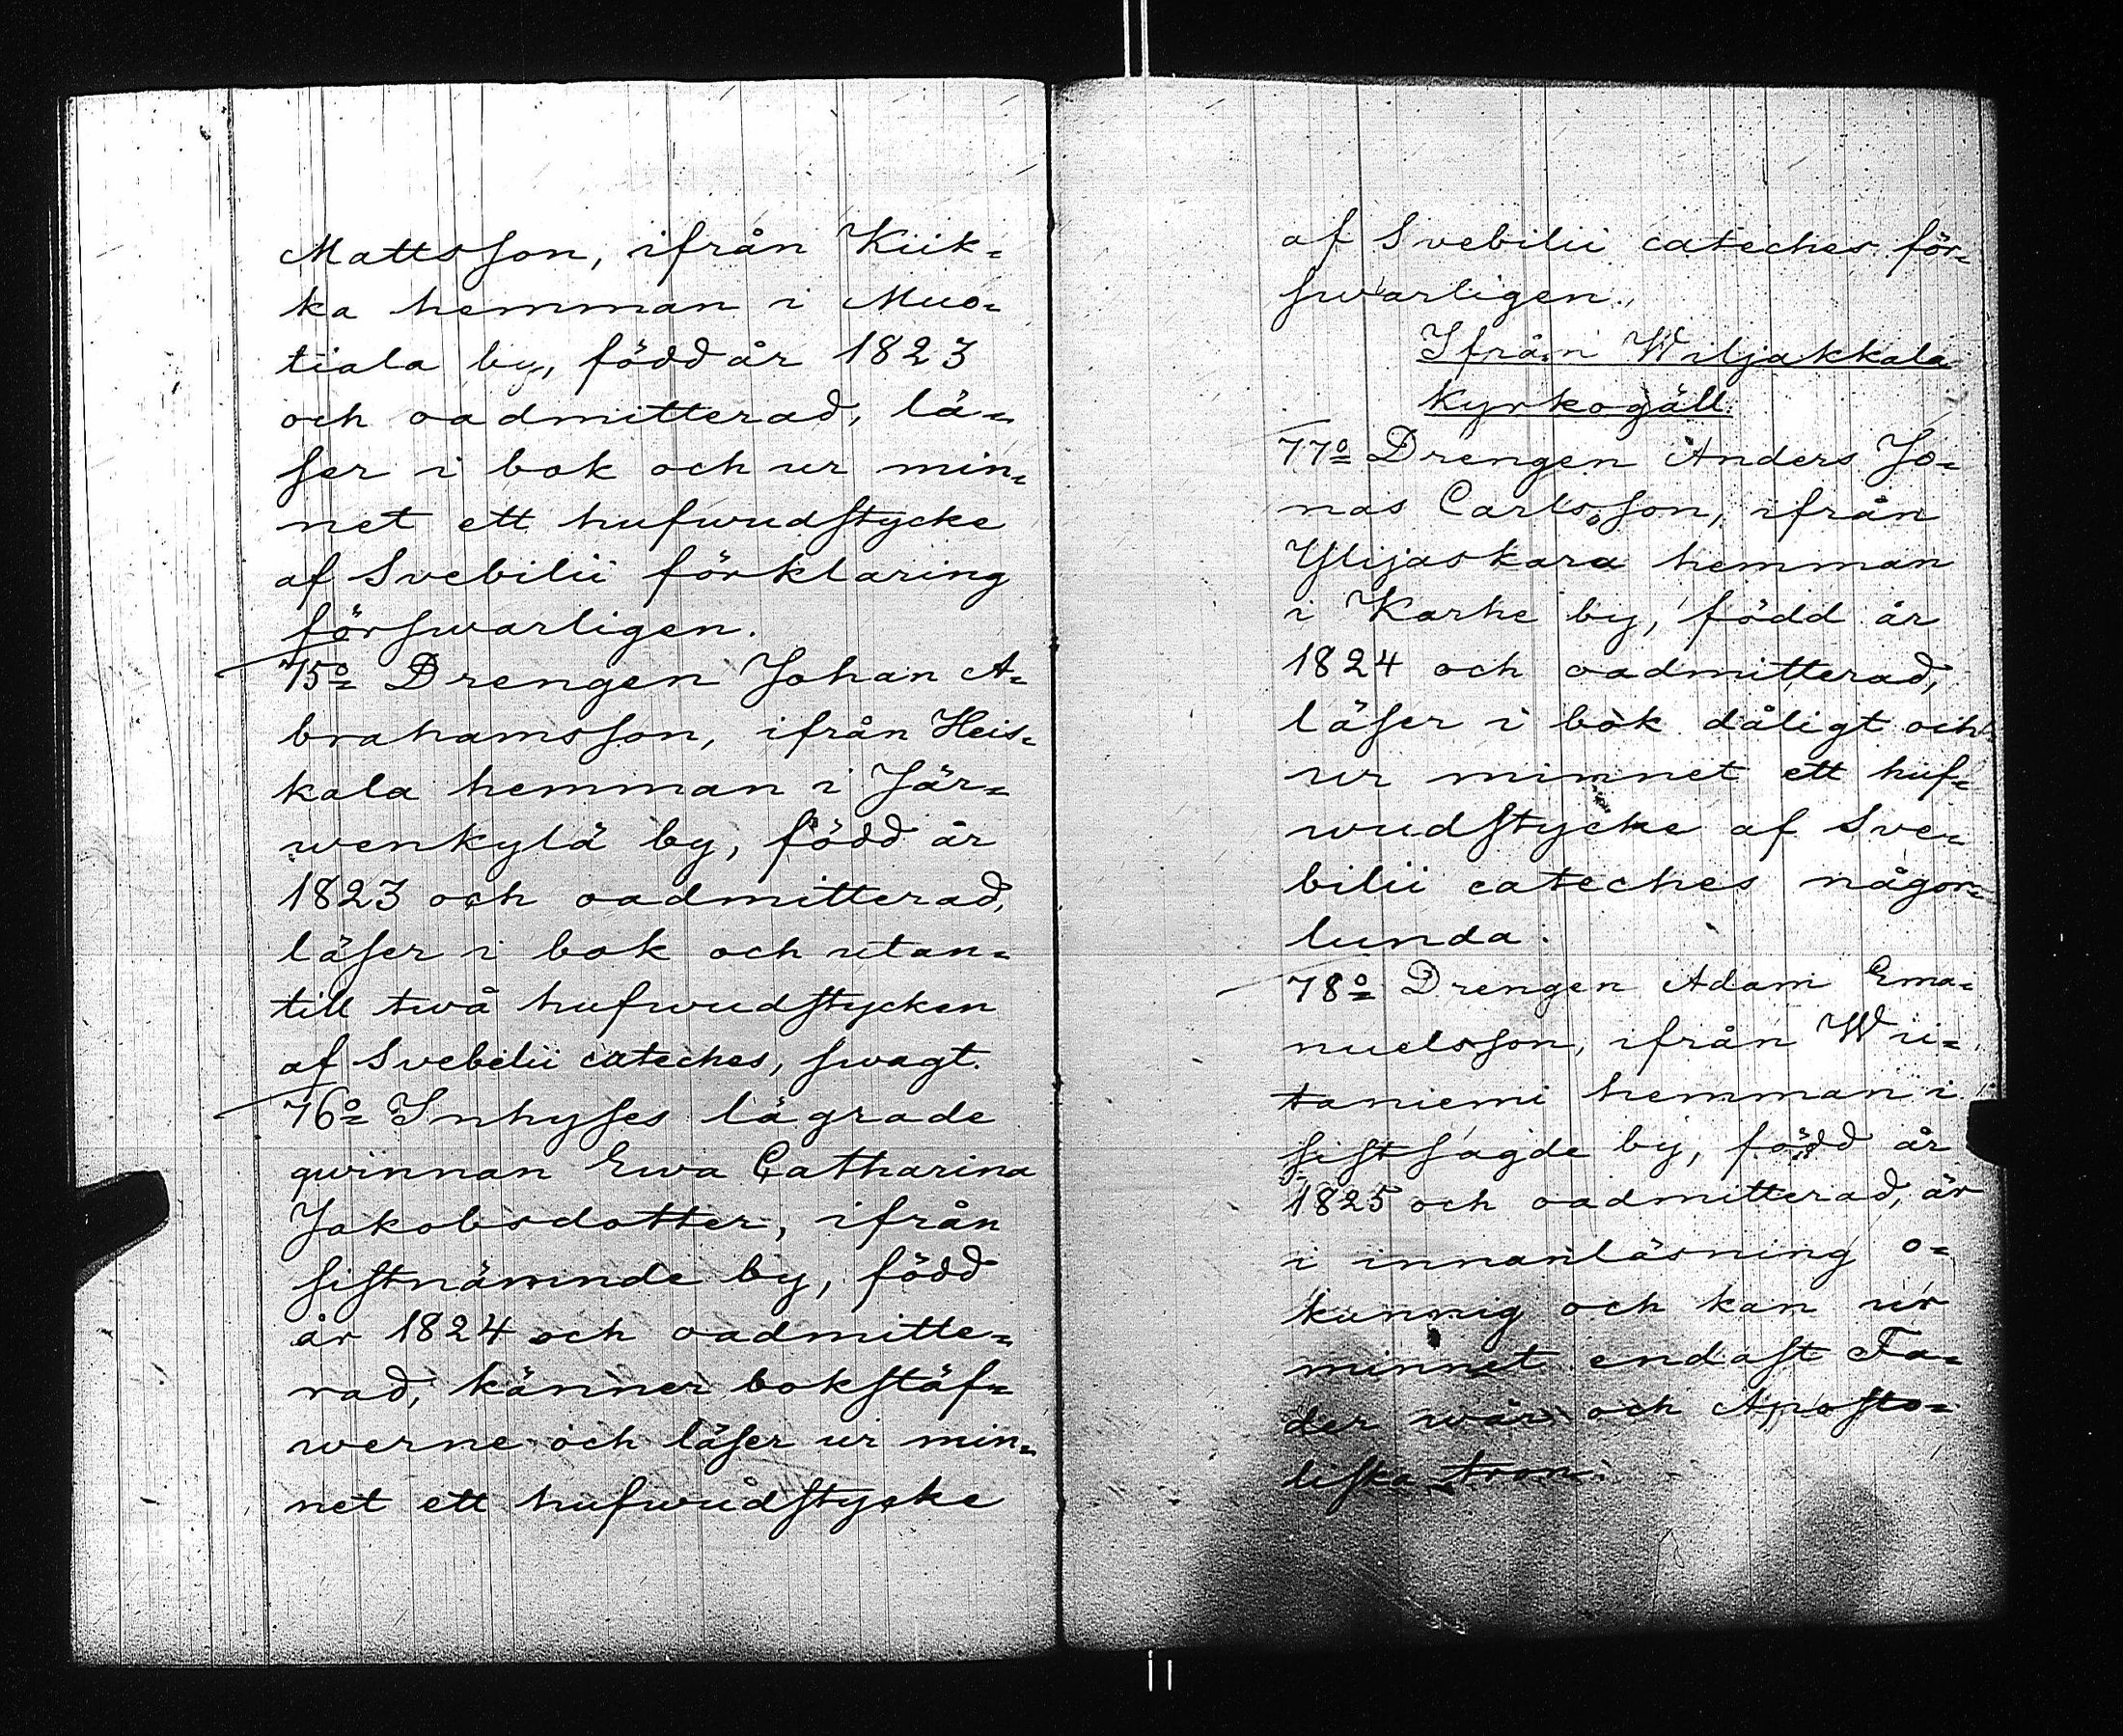 Mattsson, ifrån Kiik-
ka hemman i Muo-
tiala by, född år 1823
och oadmitterad, lä-
ser i bok och ur min-
net ett hufwudstycke
af Svebilii förklaring
förswarligen.
75o Drengen Johan A-
brahamsson, ifrån Heis-
kala hemman i Jär-
wenkylä by, född år
1823 och oadmitterad,
läser i bok och utan-
till twå hufwudstycken
af Svebelii cateches, swagt.
76o Inhyses lägrade
qwinnan Ewa Catharina
Jakobsdotter, ifrån
sistnämnde by, född
år 1824 och oadmitte-
rad, känner bokstäf-
werne och läser ur min-
net ett hufwudstycke
af Svebilii cateches för-
swarligen.
Ifrån Wiljakkala
Kyrkogäll.
77o Drengen Anders Jo-
nas Carlsson, ifrån
Ylijaskara hemman
i Karhe by, född år
1824 och oadmitterad,
läser i bok dåligt och
ur minnet ett huf-
wudstycke af Sve-
bilii cateches någor-
lunda.
78o Drengen Adam Ema-
nuelsson, ifrån Wii-
taniemi hemman i
sistsagde by, född år
1825 och oadmitterad, är
i innanläsning o-
kunnig och kan ur
minnet endast Fa-
der wår och Aposto-
liska tron.